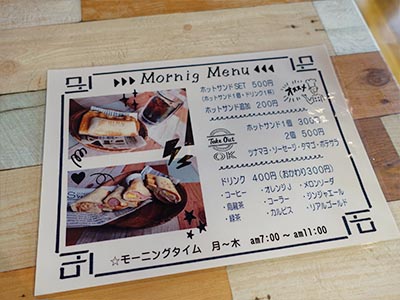 Mornig Menu
ホットサンドSET 500円
(ホットサンド1個・ドリンク1杯)
ホットサンド追加 200円
オススメ
ホットサンド1個 300円
2個 500円
Take Out
OK
ツナマヨ・ソーセージ・タマゴ・ポテサラ
ドリンク 400円(おかわり300円)
・コーヒー ・オレンジJ ・メロンソーダ
・烏龍茶 ・コーラー ・ジンジャエール
・緑茶 ・カルピス ・リアルゴールド
☆モーニングタイム 月〜木 am7:00〜am11:00